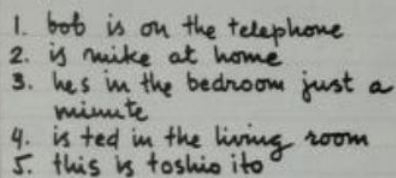 1. bob is on the telephone
2. is mike at home
3. hes in the bedroom just a
minute
4. is ted in the living room
5. this is toshio ito